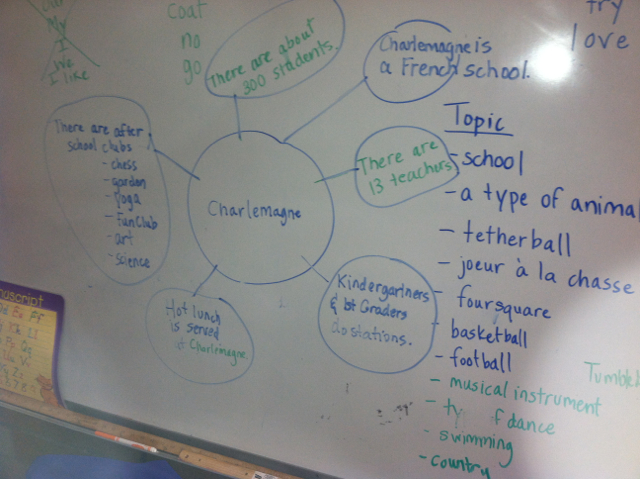 My
I
We
I like
Coat
no
go
try
love
There are about
300 students.
Charlemagne is
a French school.
There are after
school clubs
- chess
- garden
- yoga
- Fun Club
- art
- science
Charlemagne
There are
13 teachers
Hot lunch
is served
at Charlemagne.
Kindergartners
& 1st Graders
do stations.
Topic
- school
- a type of animal
- tetherball
- joeur à la chasse
- foursquare
- basketball
- football
- musical instrument
- ty f dance
- swimming
- country